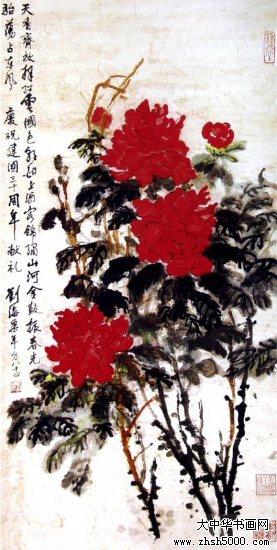 天香齐放擁紅雲國色朝酣上酒容錦繡山河金鼓振春光
駘蕩占東风 慶祝建國三十周年 献礼 劉海粟年方八十四
大中华书画网
www.zhsh5000.com